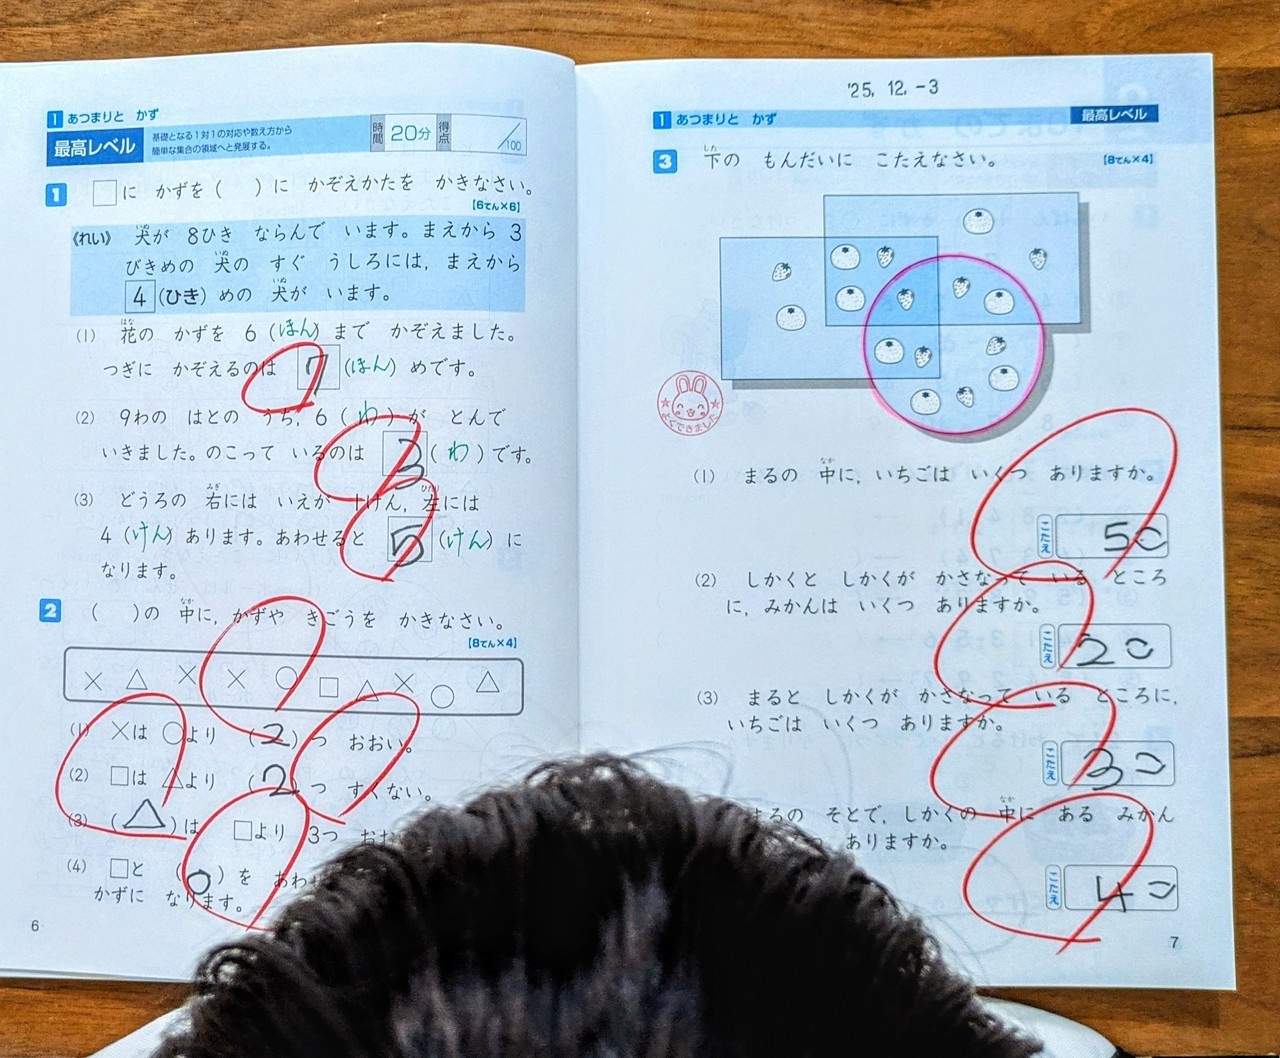 1 あつまりと かず
最高レベル
基礎となる1対1の対応や数え方から
簡単な集合の領域へと発展する。
時間 20分 得点 /100
1 □に かずを( )に かぞえかたを かきなさい。
【6てん×6】
《れい》 犬が 8ひき ならんで います。まえから 3
びきめの 犬の すぐ うしろには，まえから
4(ひき)めの 犬が います。
(1) 花の かずを 6(ほん)まで かぞえました。
つぎに かぞえるのは 7(ほん)めです。
(2) 9わの はとの うち，6(わ)が とんで
いきました。のこって いるのは 3(わ)です。
(3) どうろの 右には いえが 1けん，左には
4(けん)あります。あわせると 5(けん)に
なります。
2 ( )の 中に，かずや きごうを かきなさい。
【8てん×4】
× △ × × ○ □ △ × ○ △
(1) ×は ○より (2)つ おおい。
(2) □は △より (2)つ すくない。
(3) (△)は □より 3つ おお
(4) □と (○)を あわ
かずに なります。
6
'25. 12. -3
1 あつまりと かず
最高レベル
3 下の もんだいに こたえなさい。
【8てん×4】
よくできました
(1) まるの 中に，いちごは いくつ ありますか。
こたえ 5こ
(2) しかくと しかくが かさなって いる ところ
に，みかんは いくつ ありますか。
こたえ 2こ
(3) まると しかくが かさなって いる ところに，
いちごは いくつ ありますか。
こたえ 3こ
まるの そとで，しかくの 中に ある みかん
ありますか。
こたえ 4こ
7